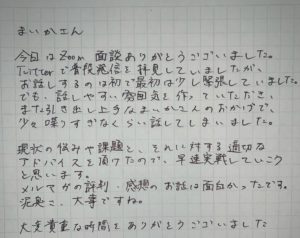 まいかさん
今日はZoom面談ありがとうございました。
Twitterで普段発信を拝見していましたが、
お話しするのは初で最初は少し緊張していました。
でも、話しやすい雰囲気を作っていただき、
また引き出し上手なまいかさんのおかげで、
少々喋りすぎなくらい話してしまいました。
現状の悩みや課題と、それに対する適切な
アドバイスを頂けたので、早速実戦していこう
と思います。
メルマガの評判・感想のお話は面白かったです。
泥臭こ、大事ですね。
大変貴重な時間をありがとうございました